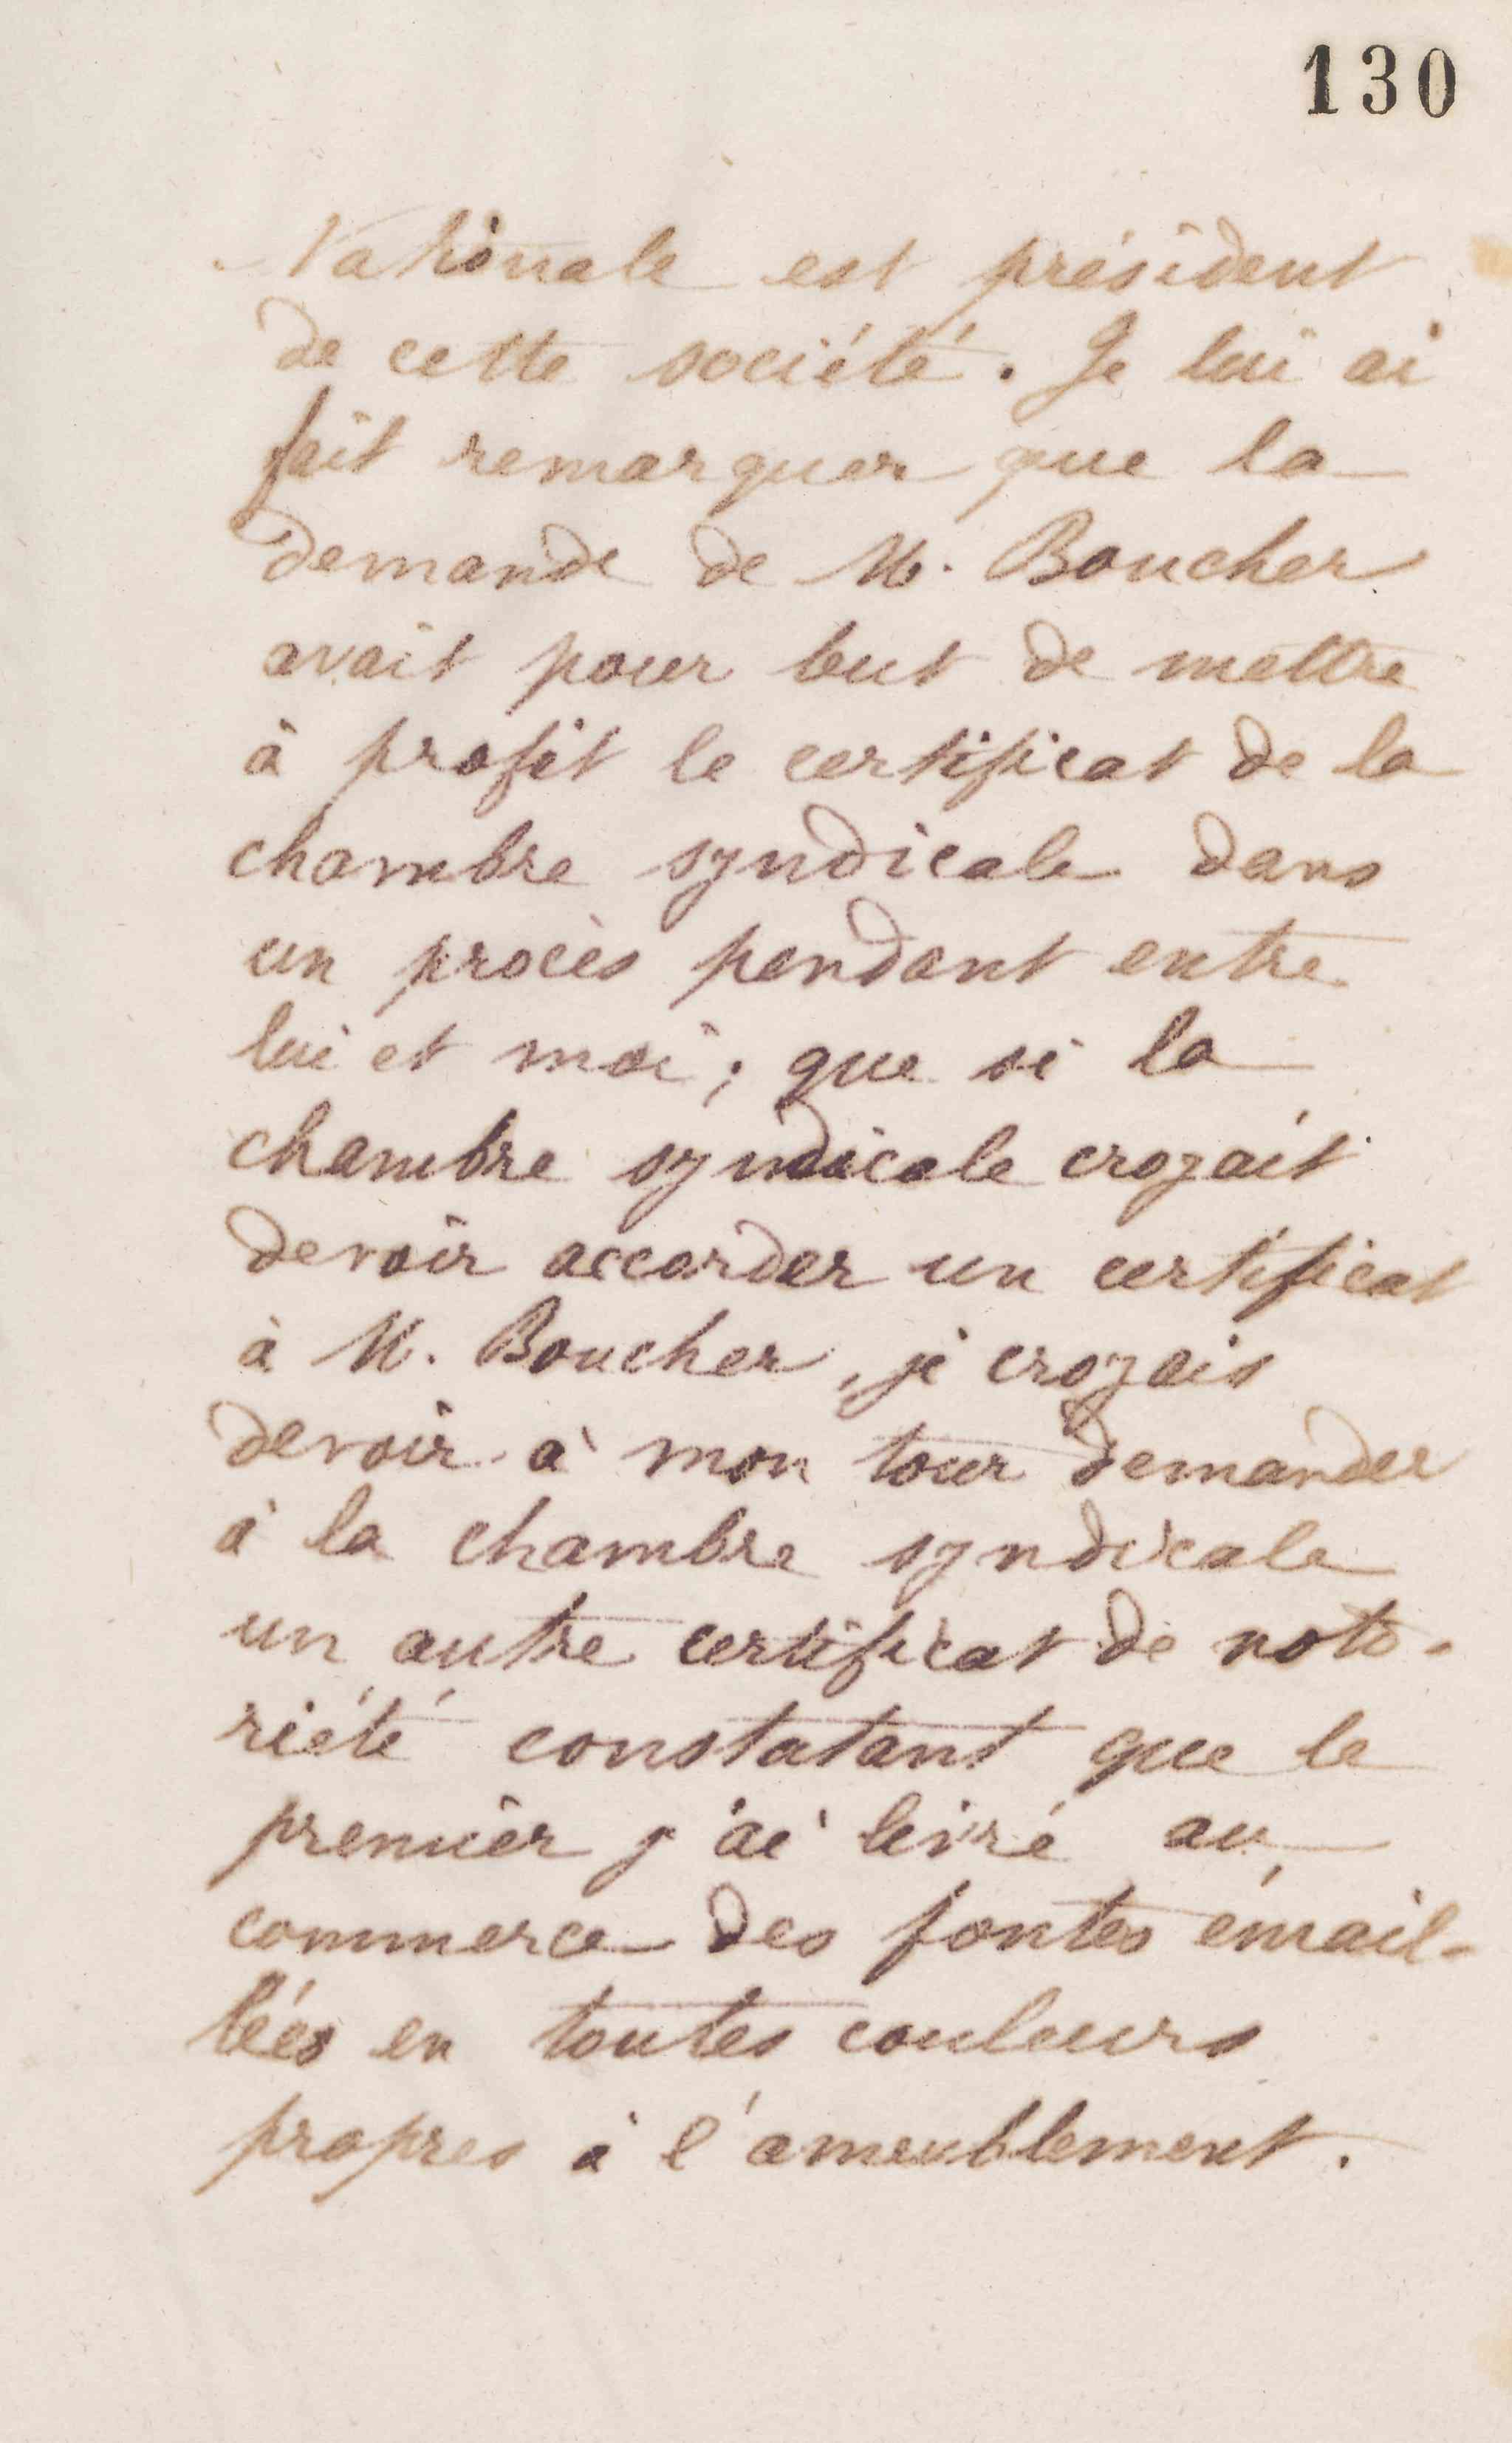 130
Nationale est président
de cette société. Je lui ai
fait remarquer que la
demande de M. Boucher
avait pour but de mettre
à profit le certificat de la
chambre syndicale dans
un procès pendant entre
lui et moi ; que si la
chambre syndicale croyait
devoir accorder un certificat
à M. Boucher, je croyais
devoir à mon tour demander
à la chambre syndicale
un autre certificat de noto-
riété constatant que le
premier j'ai livré au
commerce des fontes émail-
lées en toutes couleurs
propres à l'ameublement.